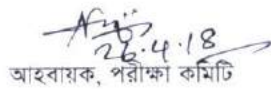 26.4.18
আহবায়ক, পরীক্ষা কমিটি